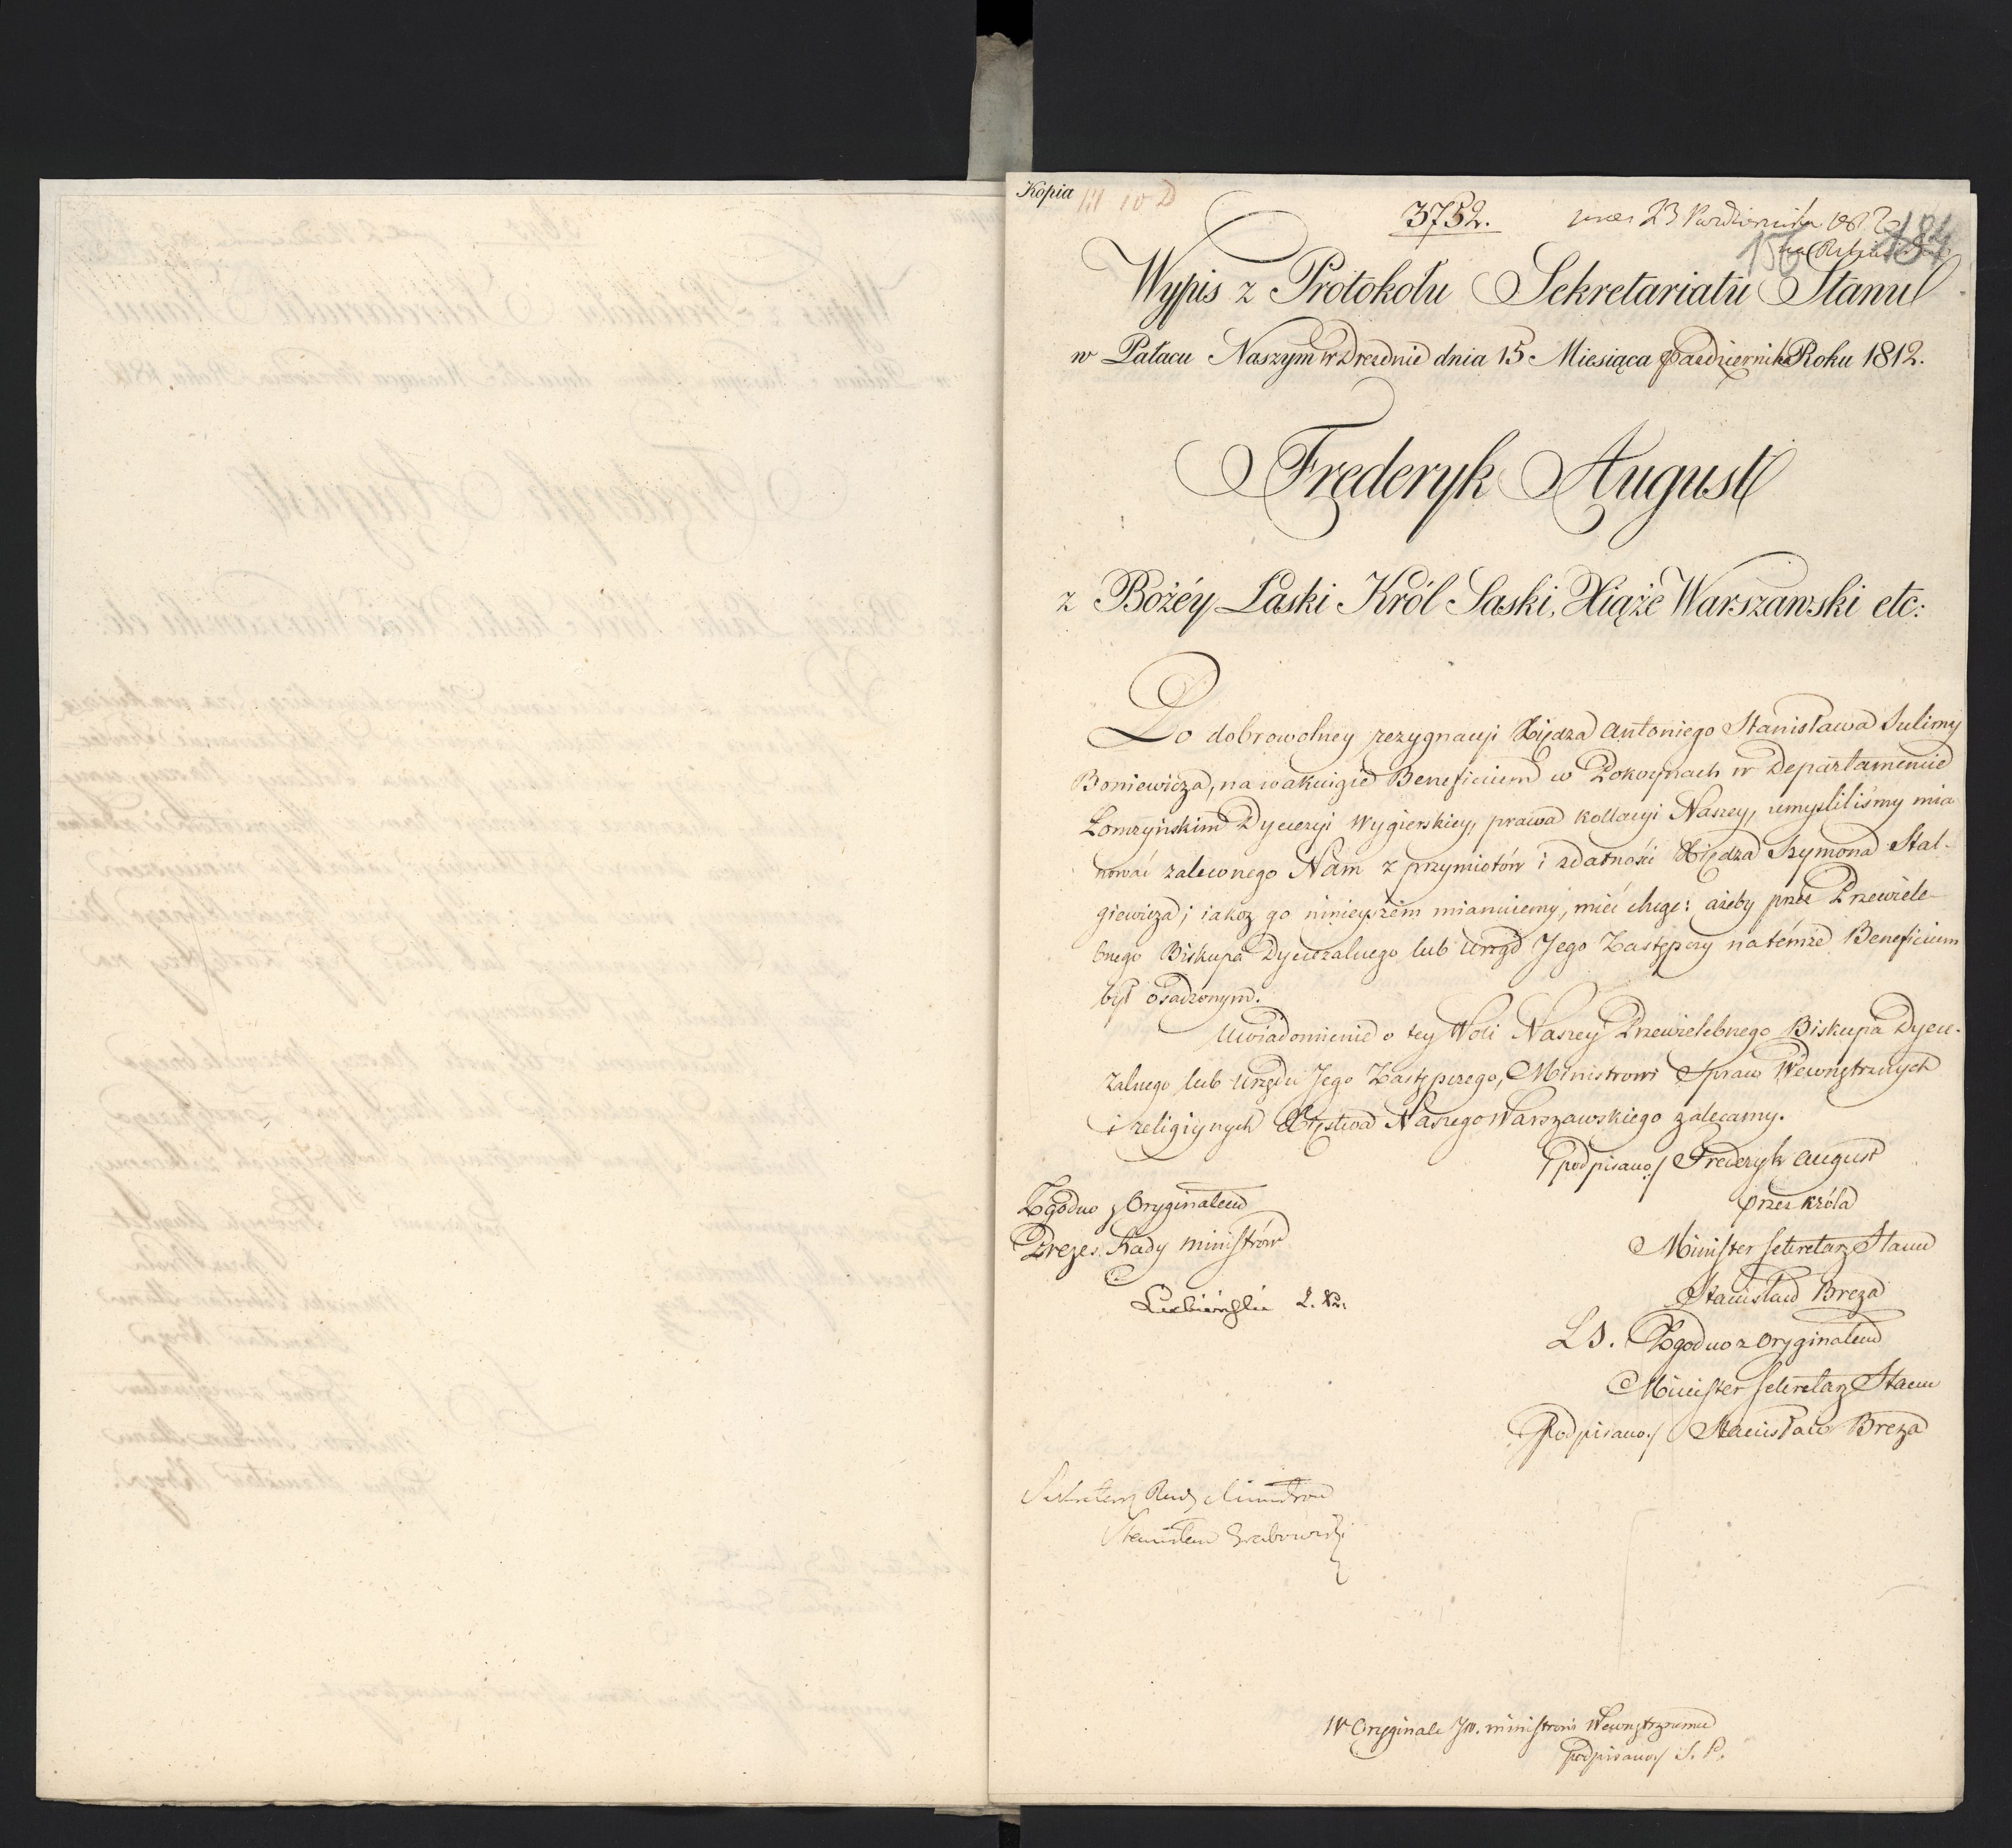 Kopia
3752.
23 Października 1812
156 184
Wypis z Protokołu Sekretariatu Stanu
w Pałacu Naszym w Dreźnie dnia 15 Miesiąca Października Roku 1812.
Frederyk August
z Bożéy Łaski Król Saski, Xiąże Warszawski etc:
Po dobrowolney rezygnacyi Xiędza Antoniego Stanisława Sulimy
Boniewicza, na wakuiące Beneficium w Pokoynach w Departamencie
Łomzyńskim Dyecezyi Wygierskiey, prawa kollacyi Naszey, umyśliliśmy mia
nować zaleconego Nam z przymiotów i zdatności Xiędza Szymona Stal-
giewicza; iakoż go ninieyszem mianuiemy, mieć chcąc: ażeby przez Przewiele-
bnego Biskupa Dyecezalnego lub Urząd Jego Zastępczy na témże Beneficium
był osadzonym.
Uwiadomienie o tey Woli Naszey Przewielebnego Biskupa Dyece-
zalnego lub Urzędu Jego Zastępczego, Ministrowi Spraw Wewnętrznych
i religiynych Xięstwa Naszego Warszawskiego zalecamy.
/podpisano:/ Frederyk August
przez Króla
Zgodno z Oryginałem
Prezes Rady Ministrów
Minister Sekretarz Stanu
Stanisław Breza
L. S. Zgodno z Oryginałem
Minister Sekretarz Stanu
Podpisano:/ Stanisław Breza
Sekretarz Rady Ministrów
Stanisław Grabowski
W Oryginale JW. Ministrowi Wewnętrznemu
podpisano:/ S. P.